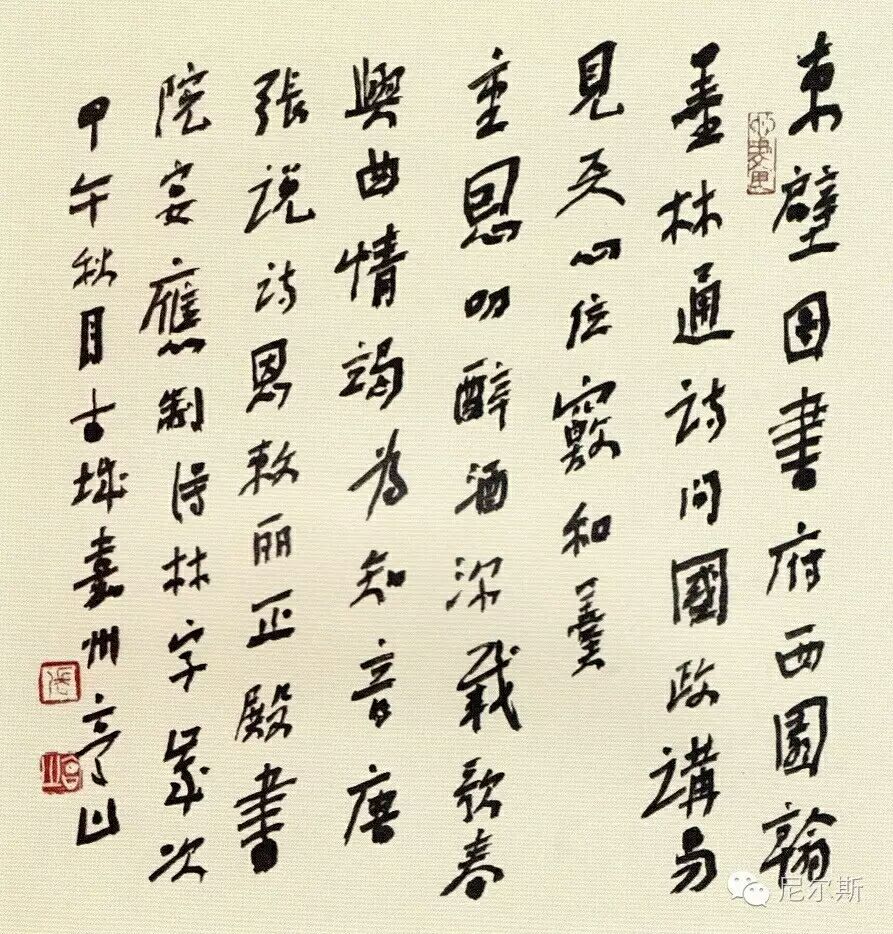 東壁图書府西園翰
墨林通詩问國政講易
見天心位竊和羹
重恩叨醉酒深載歌春
興曲情竭為知音唐
張說詩恩敕丽正殿書
院宴應制得林字
甲午秋月古城嘉州
尼尔斯